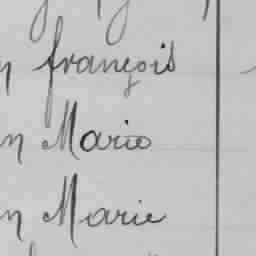 n françois
n Mario
n Marie